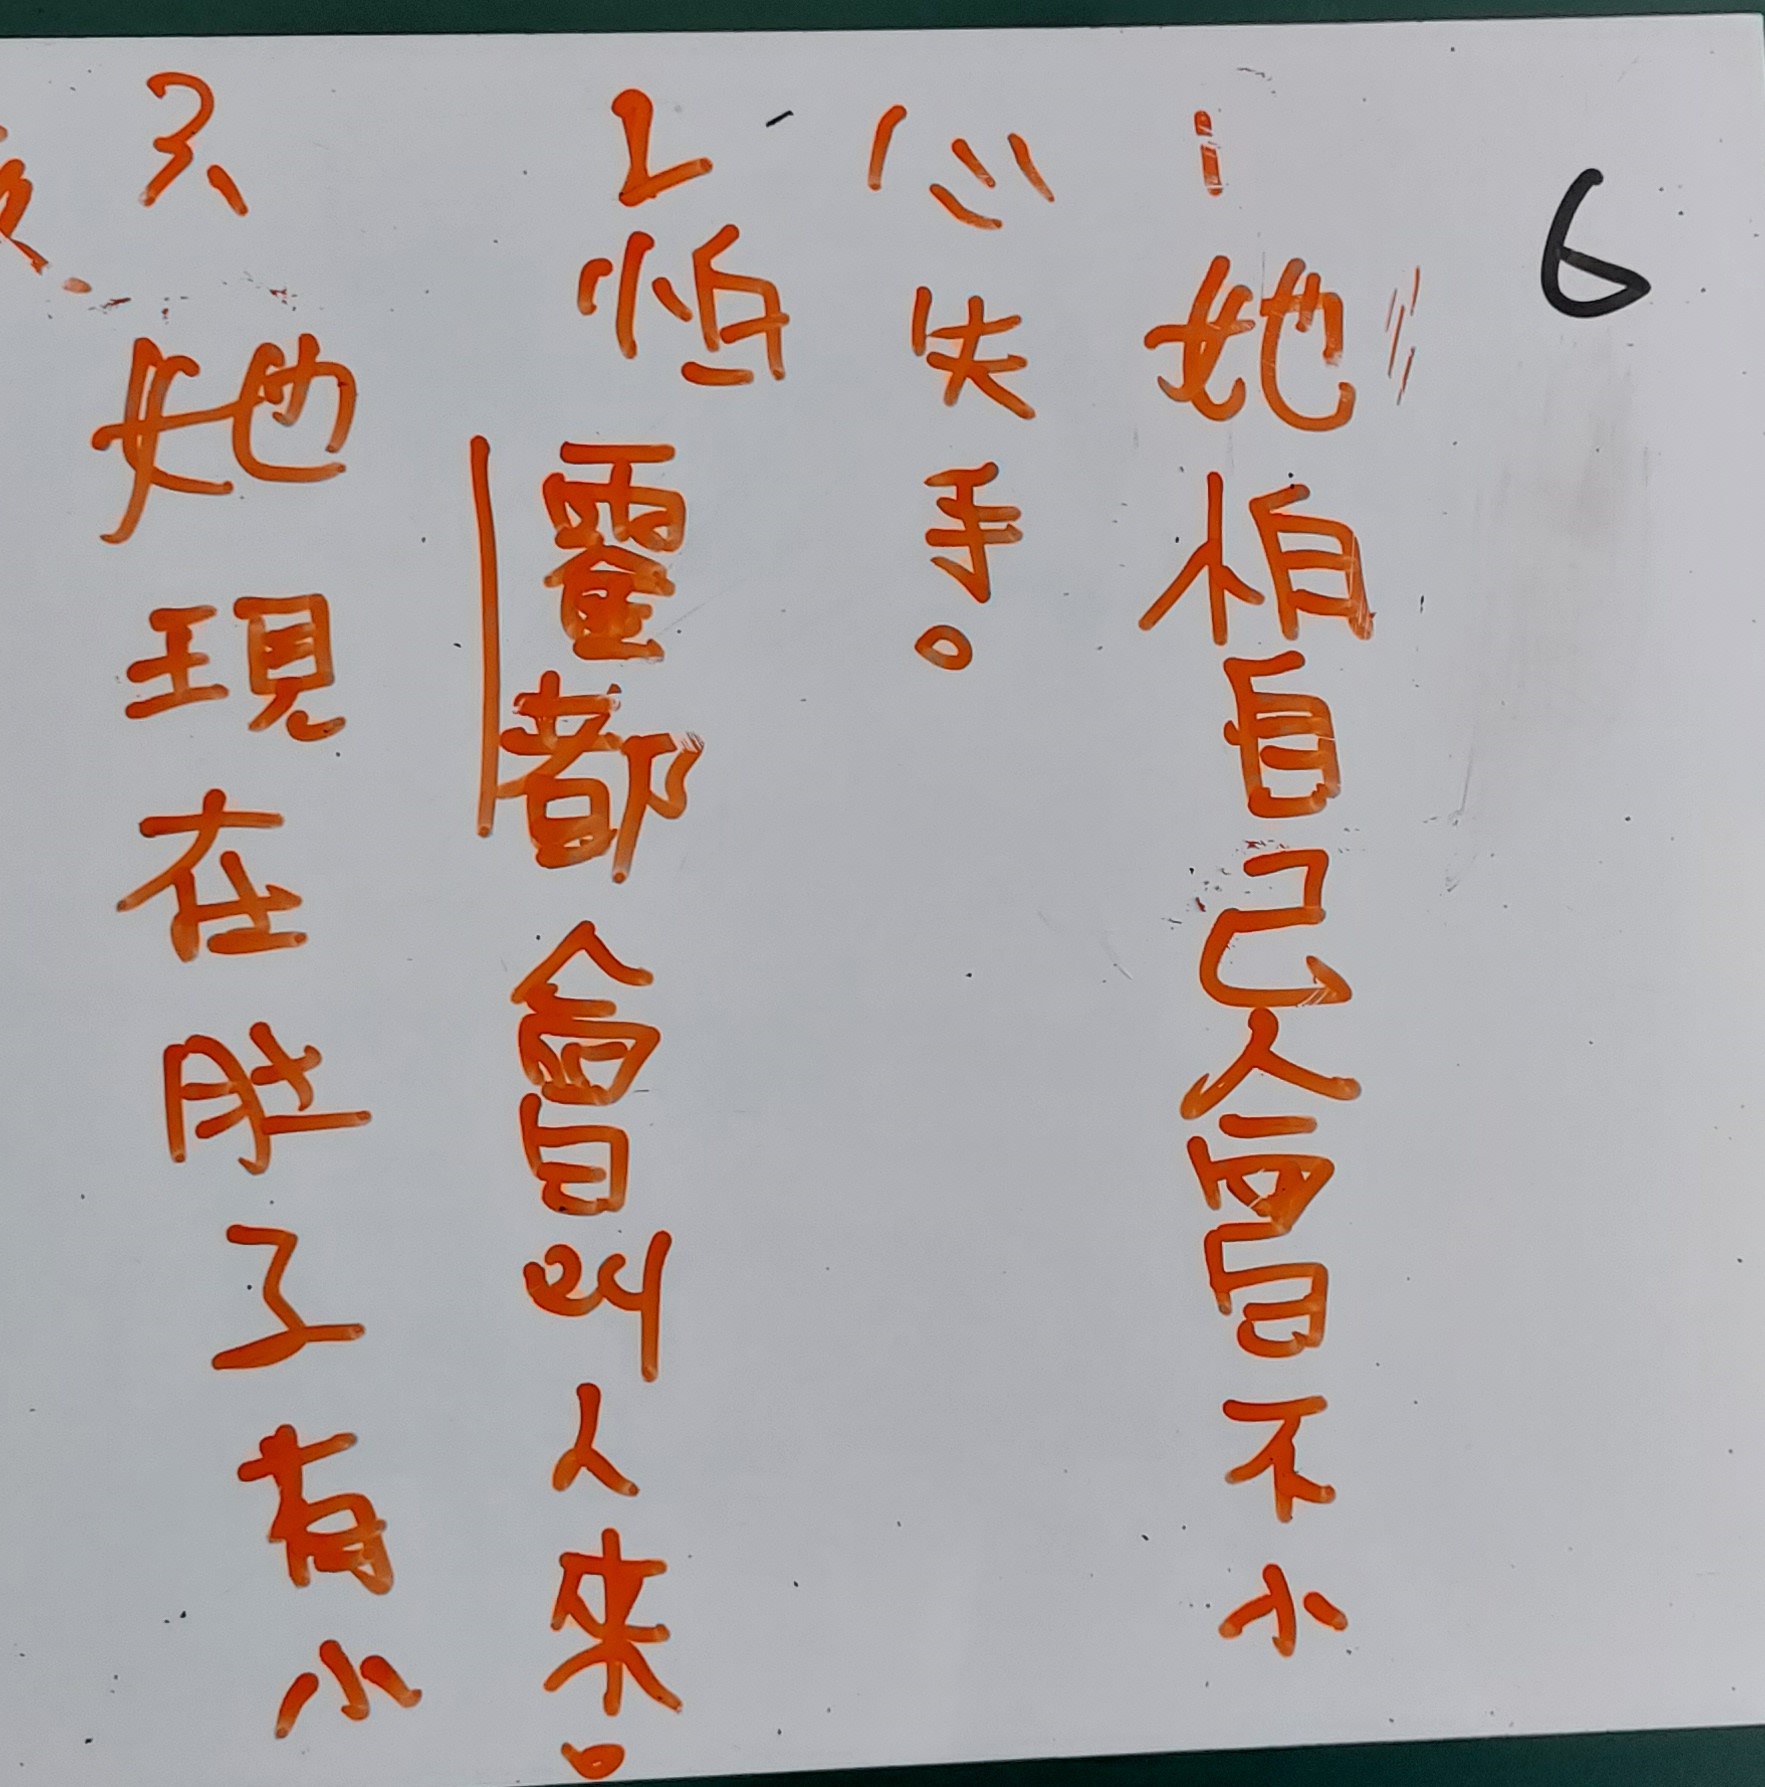 6
1 她怕自己會不小
心失手。
2 怕霍都會叫人來。
3、她現在肚子有小